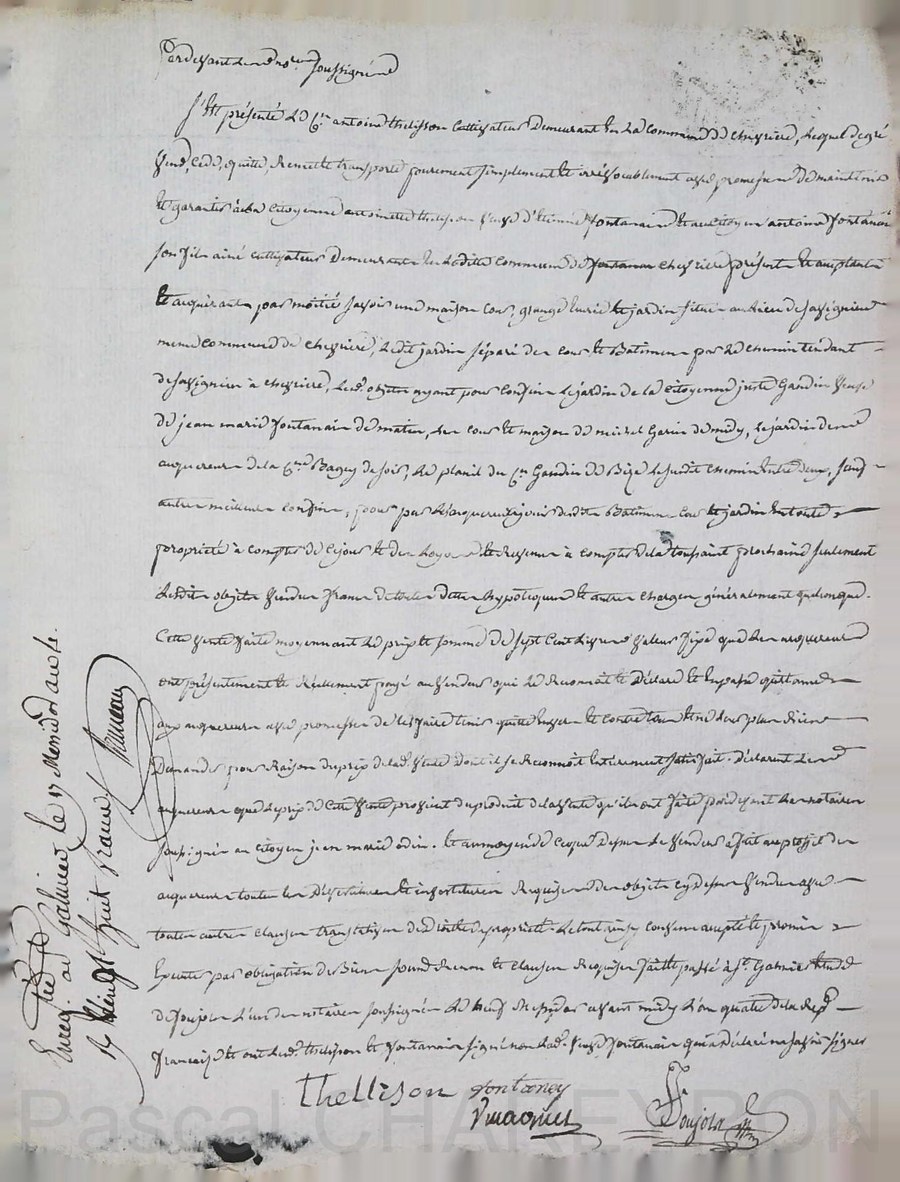 Pardevant les no.res soussignés
S'est présenté le C.en antoine thelisson cultivateur demeurant en la commune de chevrière, lequel de gré
vend, cede, quitte, remet et transporte purement simplement et irrévocablement avec promesse de maintenir
et garantir à la Citoyenne antoinette thelisson veuve d'etienne fontanair et au citoyen antoine fontanair
son fils ainé cultivateur demeurants en laditte commune de fontanair chevriere présents et acceptants
et acquérants par moitié savoir une maison cour, grange Eurie et jardin situés au lieu de savignieux
meme commune de chevriere, ledit jardin séparé des cour et Batiment par le chemin tendant
de savignieux à chevrière, lesd. objets ayant pour confins le jardin de la citoyenne juste Gaudin veuve
de jean marie fontanair de matin, les cour et maison de michel Garin de midy, le jardin des
acquereurs de la C.nne Bagey de soir, le plail du C.n Gaudin de Bize le susdit chemin entre deux, sauf
autres meilleurs confins, pour par les acquereurs jouir desdits Batiment cour et jardin en toute
propriété à compter de ce jour et des loyers et revenus à compter de la toussaint prochaine seulement
lesdits objets vendus francs de toutes dettes hypotèques et autres charges généralement quelconque.
Cette vente faite moyennant le prix et somme de sept cent livres valeur fixe que les acquereurs
ont présentement et réellement payé au vendeur qui le reconnait et déclare et en passe quittance
aux acquereurs avec promesse de les faire tenir quitte envers et contre tous et ne leur plus rien
Demander pour raison du prix de lad. vente dont il se reconnoit entierement satisfait. déclarent les
acquereurs que le prix de cette vente provient du produit de la vente qu'ils ont faite pardevant les notaires
soussignés au citoyen jean marie odin. et au moyen de ce que dessus le vendeur a fait au profit des
acquereurs toutes les Dévestitures et investitures requises des objets cy dessus vendus avec
toutes autres clauses translatives des droits de propriété. le tout ainsy convenu accepté et promis
executer par obligation de Biens soumissions renon. et clauses requises fait et passé à St. Galmier Etude
de Poujol l'un des notaires soussignés le neuf messidor avant midy l'an quatre de la Rép.
francaise et ont lesd. thelisson et fontanair signé non lad. veuve fontanair qui a déclaré ne savoir signer
thellison fontaney
Poujolz
Enreg. à Galmier le 17 Messidor an 4.